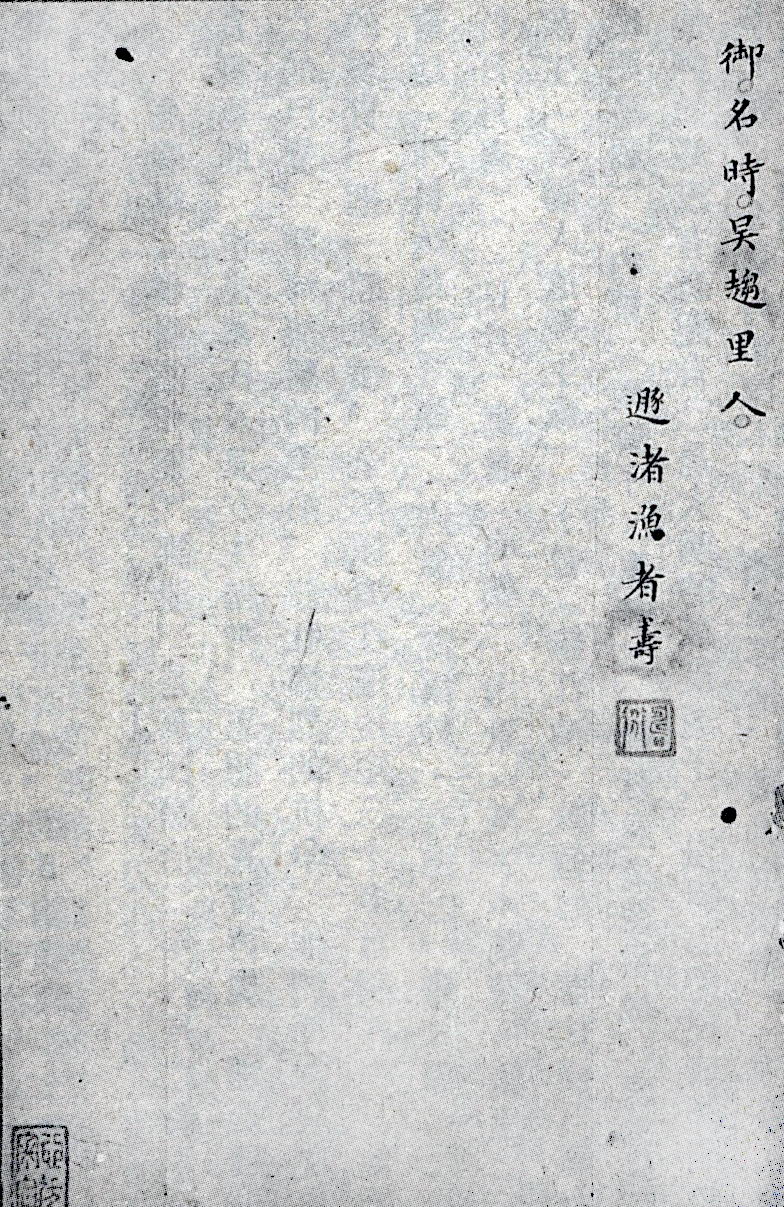 御名時吴趨里人
遯渚漁者壽